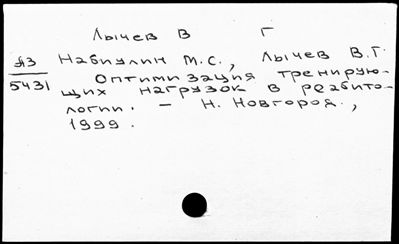 Лычев В Г
яз Набиулин М.С., Лычев В.Г.
5431 Оптимизация тренирую-
щих нагрузок в реабито-
логии. – Н. Новгород.,
1999.